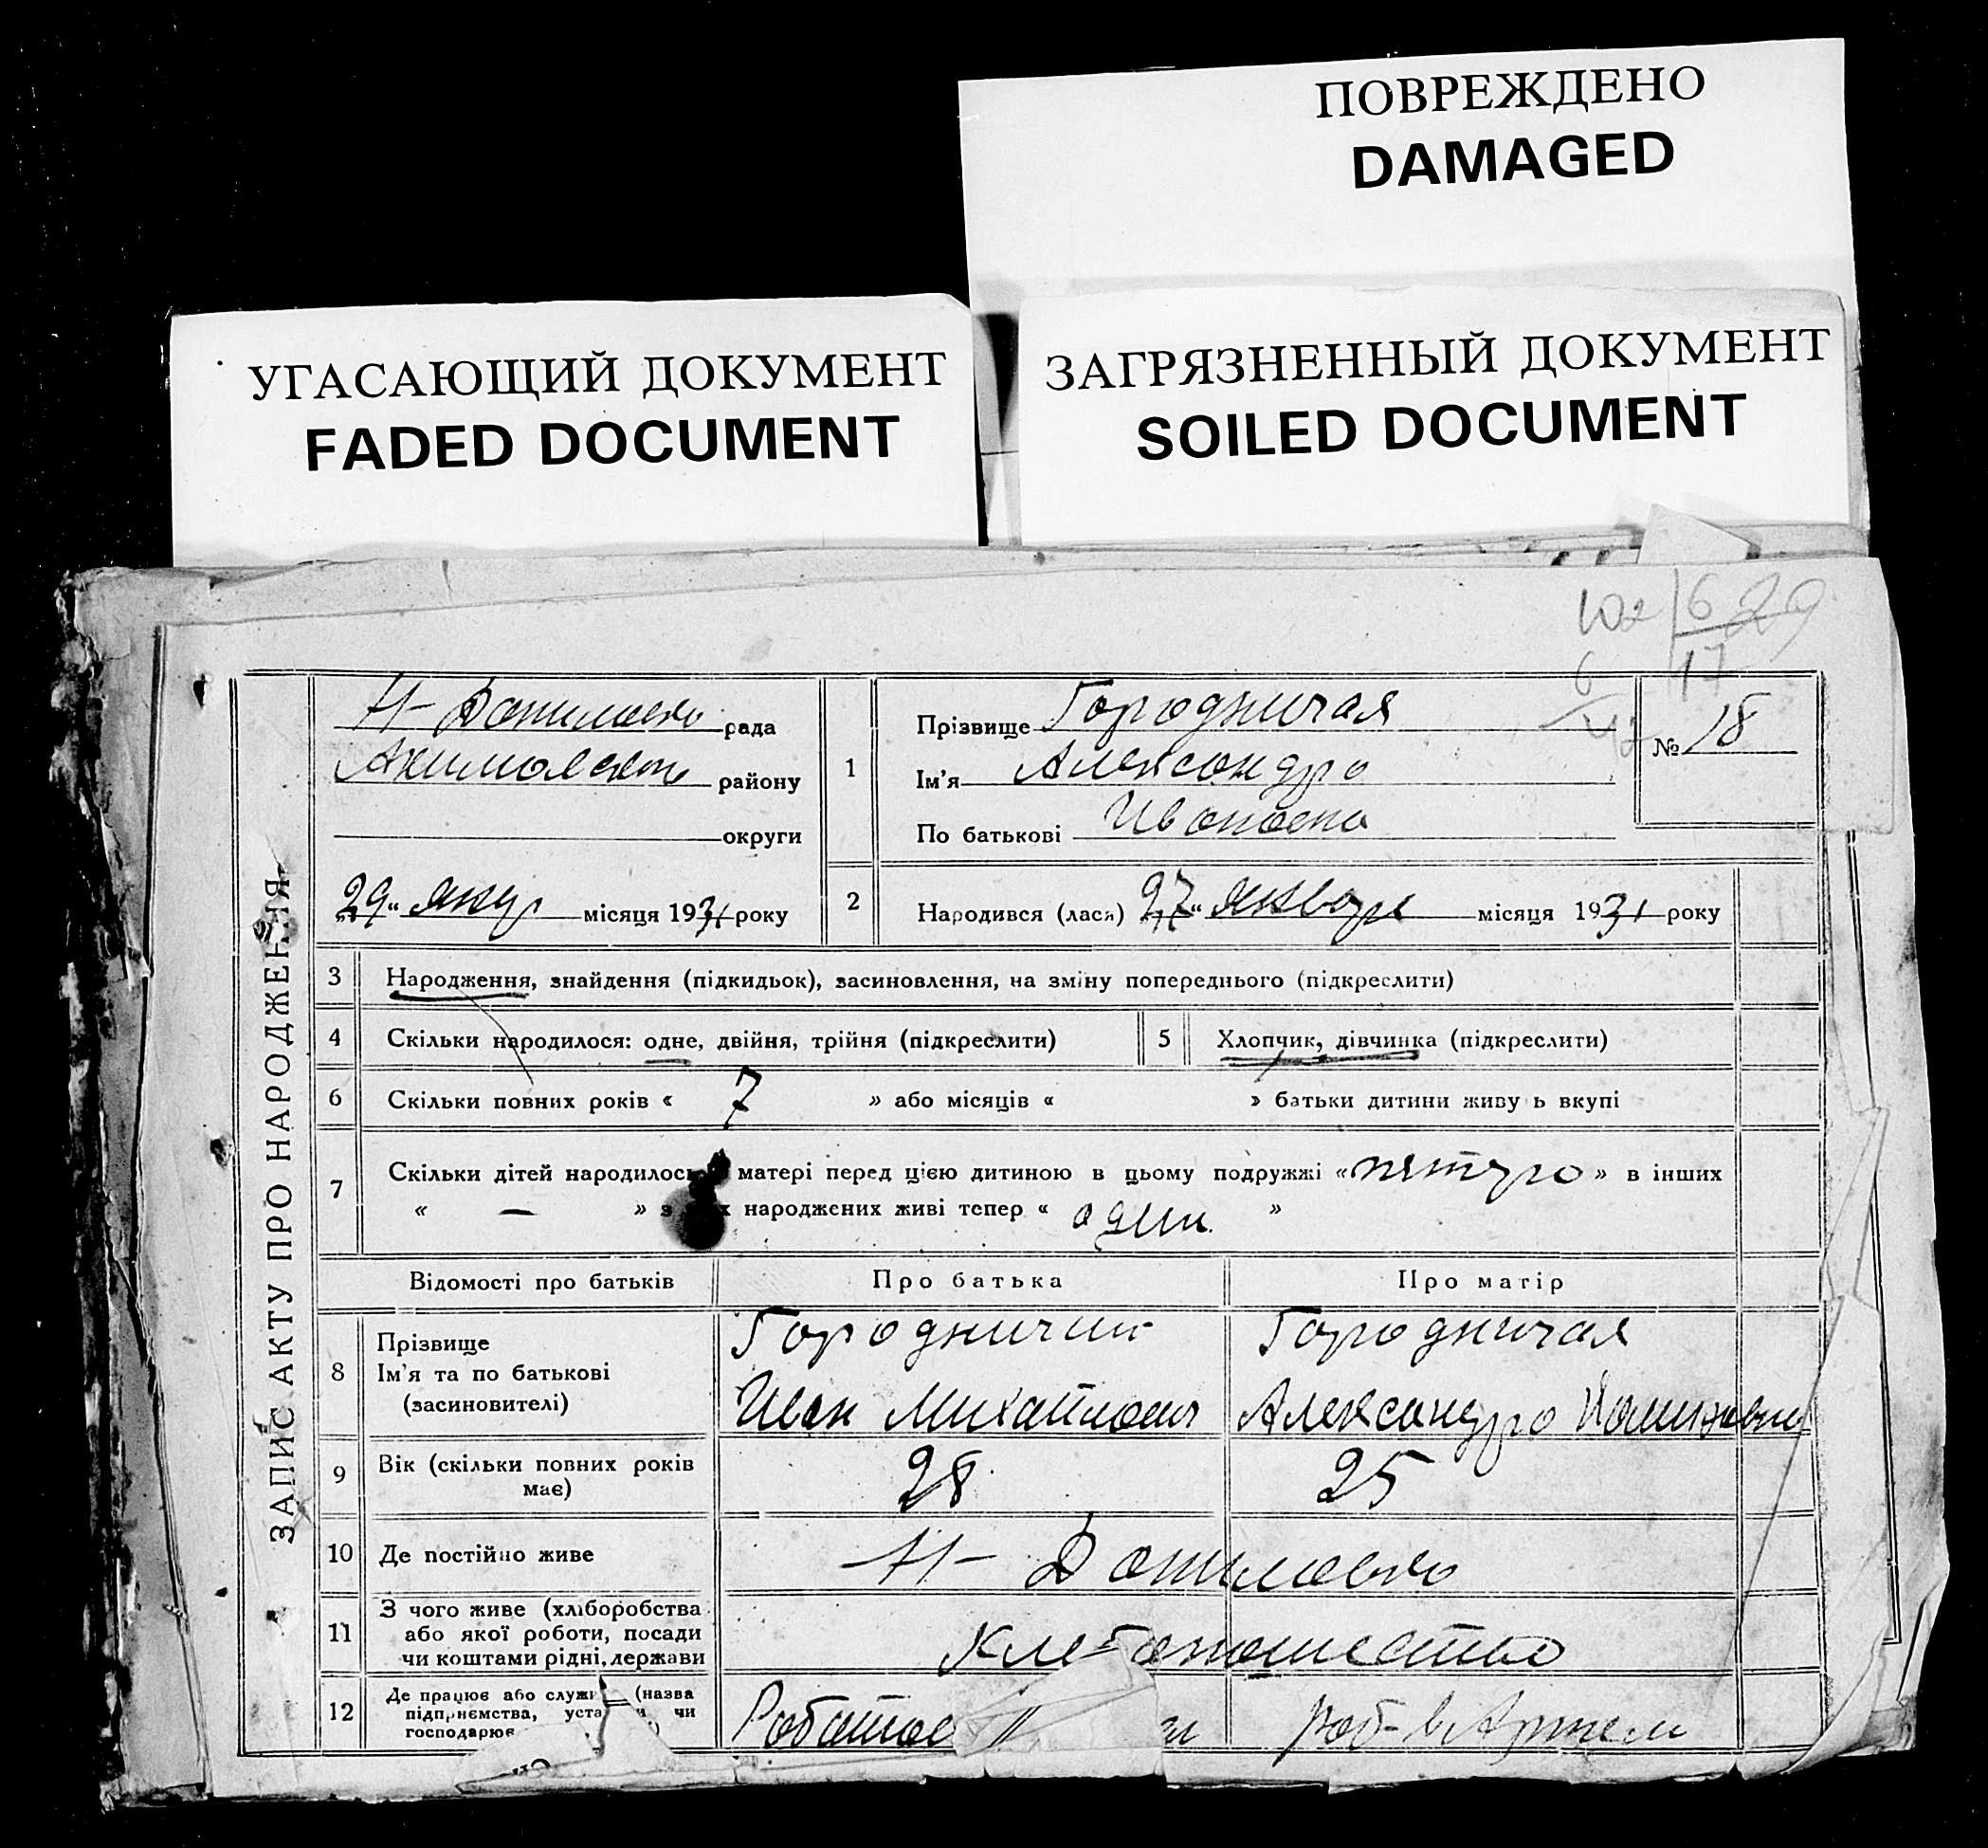 ПОВРЕЖДЕНО
DAMAGED
УГАСАЮЩИЙ ДОКУМЕНТ
FADED DOCUMENT
ЗАГРЯЗНЕННЫЙ ДОКУМЕНТ
SOILED DOCUMENT
629
17
ЗАПИС АКТУ ПРО НАРОДЖЕННЯ
Н-Даниловко рада
Акимовского району
округи
„29“ янвр місяця 1931 року
1
Прізвище Городничая
Ім'я Александра
По батькові Ивановна
№ 18
2 Народився (лася) „27“ января місяця 1931 року
3 Народження, знайдення (підкидьок), засиновлення, на зміну попереднього (підкреслити)
4 Скільки народилося: одне, двійня, трійня (підкреслити)
5 Хлопчик, дівчинка (підкреслити)
6 Скільки повних років « 7 » або місяців « » батьки дитини живу ь вкупі
7 Скільки дітей народилось матері перед цією дитиною в цьому подружжі « пятеро » в інших
« — » з х народжених живі тепер « один »
Відомості про батьків Про батька Про матір
8 Прізвище
Ім'я та по батькові
(засиновителі)
Городничий
Иван Михайлович
Городничая
Александра
9 Вік (скільки повних років
має)
28
25
10 Де постійно живе Н-Даниловко
11 З чого живе (хліборобства
або якої роботи, посади
чи коштами рідні, держави
12 Де працює або служи (назва
підприємства, уста и чи
господарює
Работае
роб- в Артели